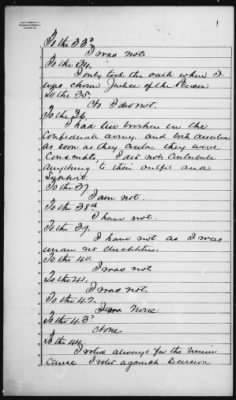 To the 33d
I was not.
To the 34.
I only took the oath when I
was chosen Justice of the Peace
To the 35.
No I did not.
To the 36.
I had two brothers in the
Confederate army and both
as soon as they were
Conscripts, I did not contribute
anything to their outfit and
Support.
To the 37
I am not.
To the 38th
I have not.
To the 39.
I have not as I was
under no
To the 40.
I was not
To the 41.
I was not.
To the 42.
None.
To the 43d
None
To the 44
I voted always for the Union
cause I voted against Secession